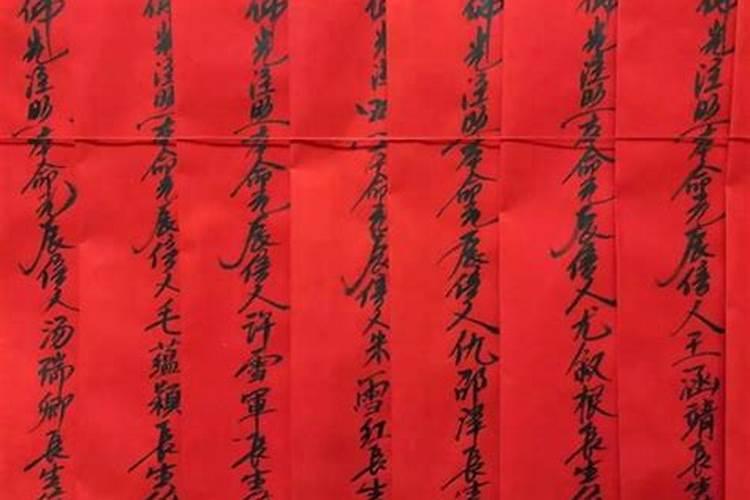 佛光注照本命元辰信人王涵靖長生
佛光注照本命元辰信人尤敘根長生
佛光注照本命元辰信人仇邵澤長生
佛光注照本命元辰信人朱雪红長生
佛光注照本命元辰信人许雪軍長生
佛光注照本命元辰信人毛蕴颖長生
佛光注照本命元辰信人汤瑞卿長生